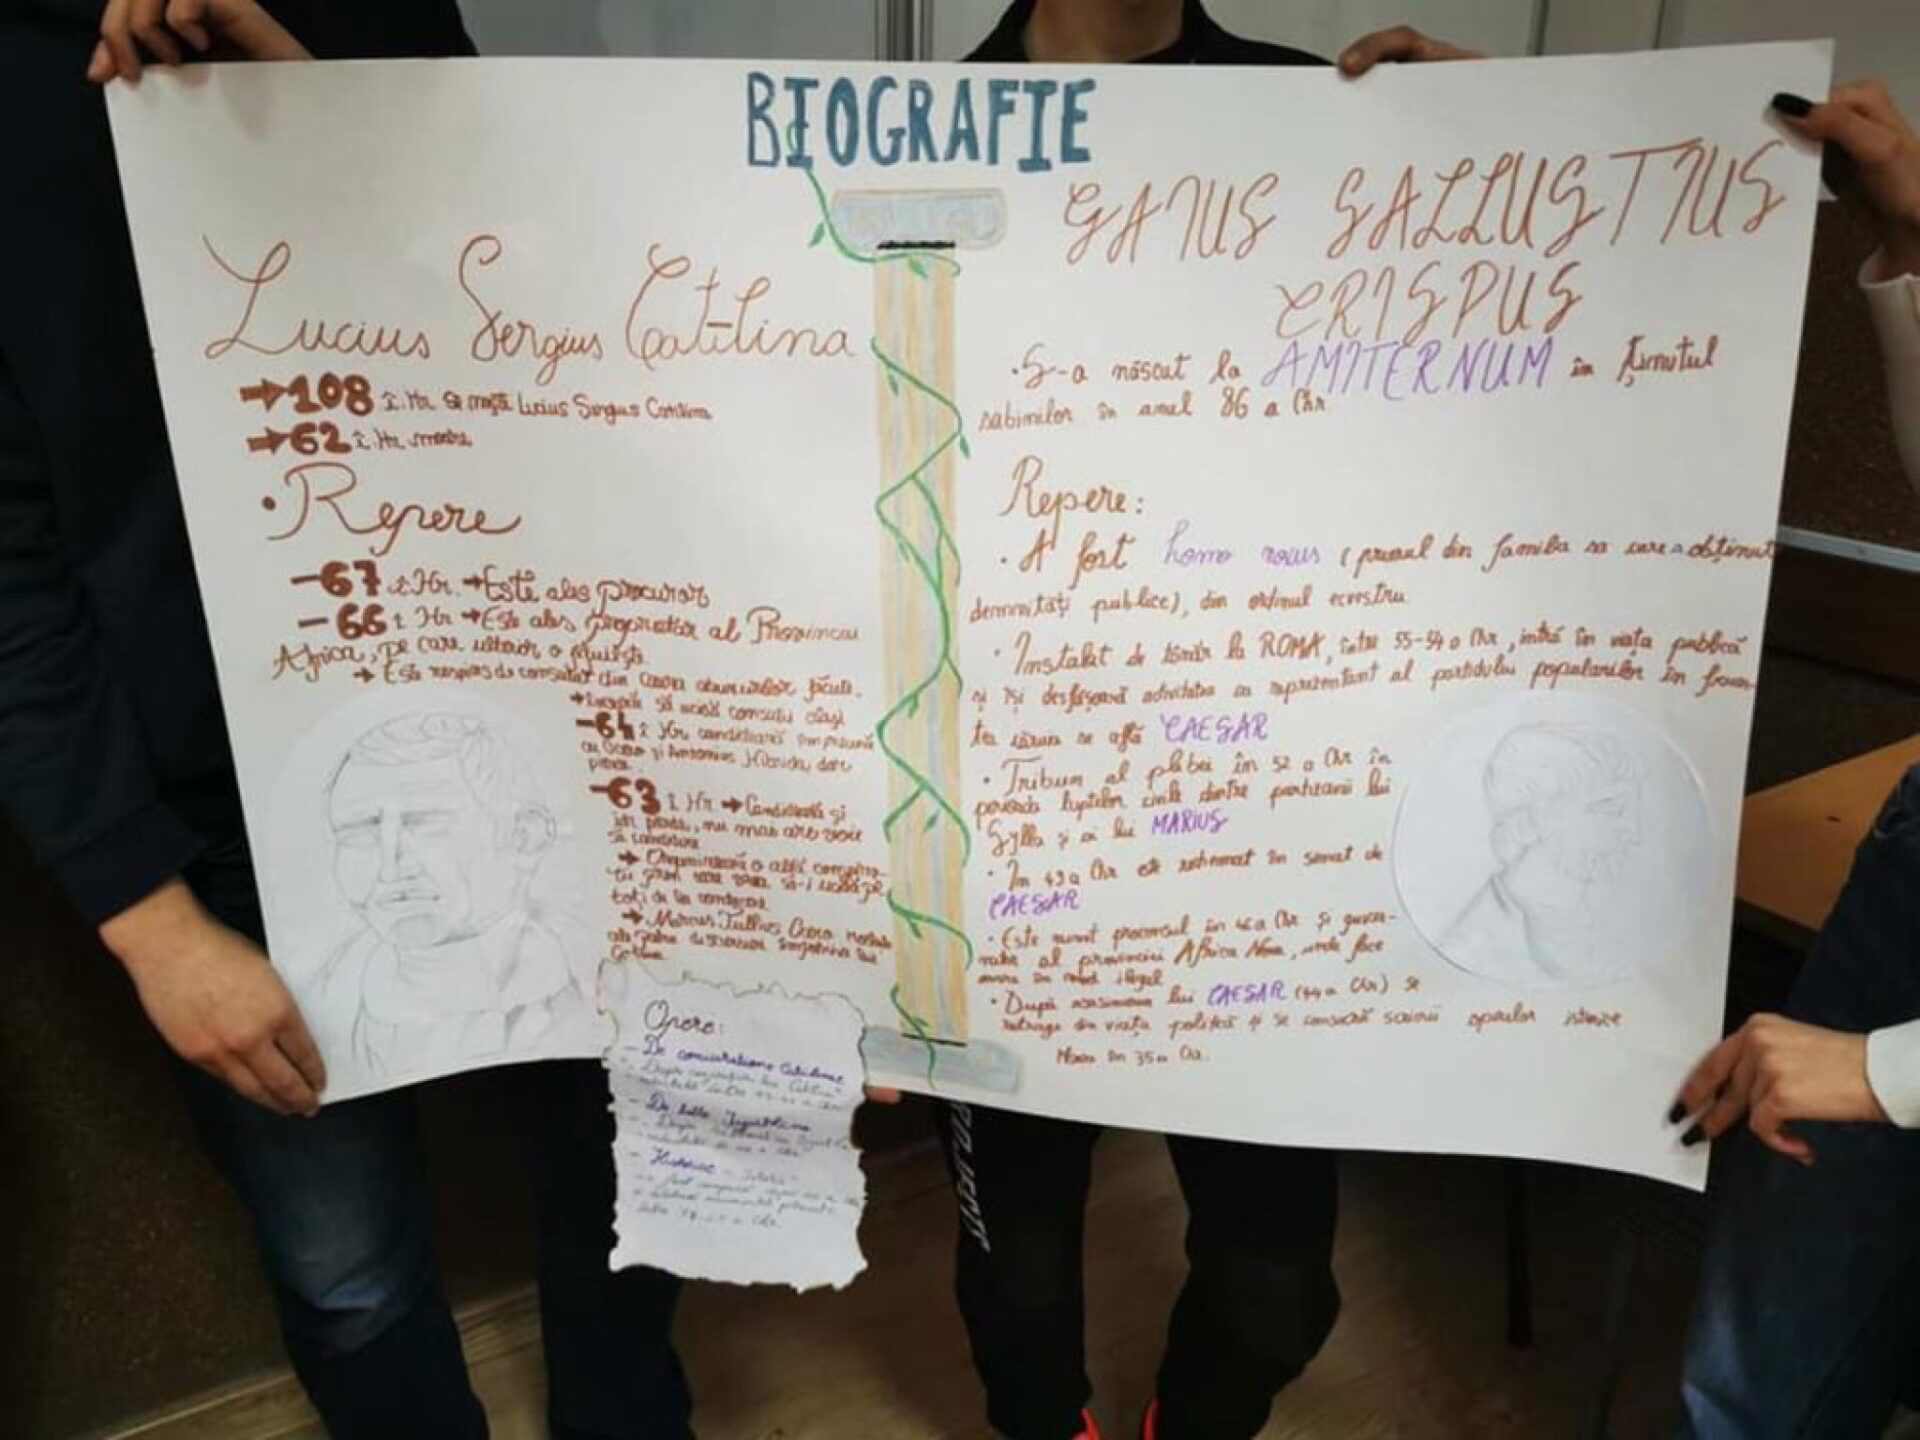 BIOGRAFIE
Lucius Sergius Catilina
108 î.Hr. Se naște Lucius Sergius Catilina
62 î.Hr. moare
• Repere
-67 î.Hr. → Este ales procuror
-66 î Hr → Este ales proprietar al Provinciei
Africa, pe care ulterior o jefuiește
→ Este respins de consulat din cauza abuzurilor făcute.
→ Încearcă să ucidă consulii aleși
-64 î Hr candidează împreună
cu Cicero și Antonius Hibrida, dar
pierde
-63 î Hr → Candidează și
pierde, nu mai are voie
să candideze
→ Organizează o altă conspira-
ție prin care să-i ucidă pe
toți de la conducere
→ Marcus Tullius Cicero
discursuri împotriva lui
Catilina
Opere:
- De coniuratione Catilinae
- De bello Iugurthino
- Historiae - Istorii
GAIUS SALLUSTIUS
CRISPUS
• S-a născut la AMITERNUM în ținutul
sabinilor în anul 86 a Chr.
Repere:
• A fost homo novus (primul din familia sa care a obținut
demnități publice), din ordinul ecvestru
• Instalat de tânăr la ROMA, între 55-54 a Chr, intră în viața publică
și își desfășoară activitatea ca reprezentant al partidului popularilor în frun-
tea căruia se află CAESAR
• Tribun al plebei în 52 a Chr în
perioada luptelor civile dintre partizanii lui
Sylla și ai lui MARIUS
• În 49 a Chr este rechemat în senat de
CAESAR
• Este numit proconsul în 46 a Chr și guver-
nator al provinciei Africa Nova, unde face
avere în mod ilegal
• După asasinarea lui CAESAR (44 a Chr) se
retrage din viața politică și se consacră scrierii operelor istorice
Moare în 35 a Chr.